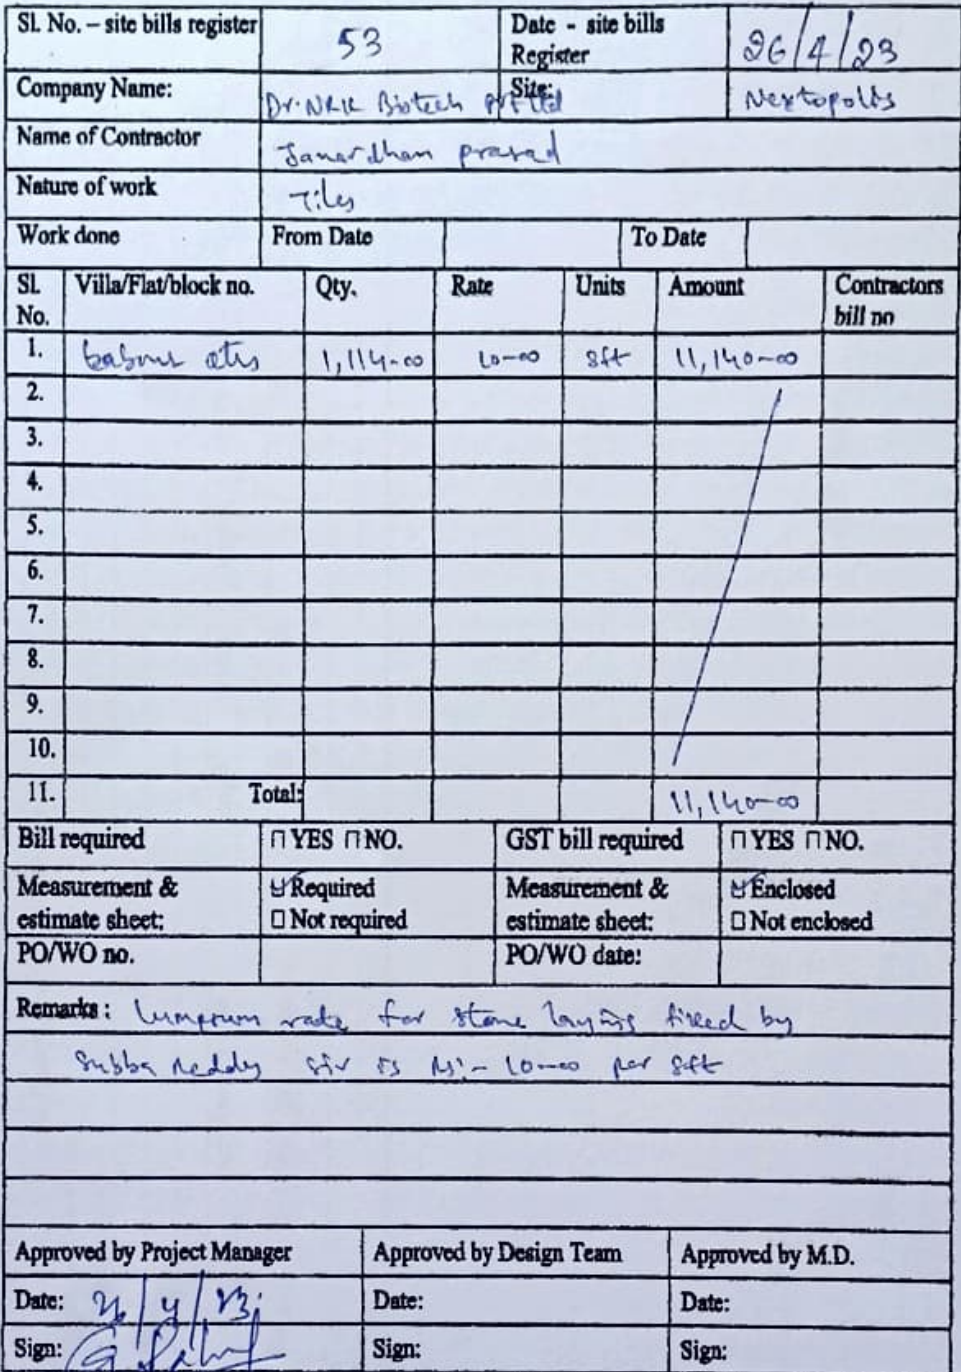 Sl. No. – site bills register 53 Date - site bills Register 26/4/23
Company Name: Dr. NRK Biotech pvt ltd Site: Nextopolis
Name of Contractor Janardhan prasad
Nature of work Tiles
Work done From Date To Date
Sl. No. Villa/Flat/block no. Qty. Rate Units Amount Contractors bill no
1. 1,114-00 10-00 sft 11,140-00
2.
3.
4.
5.
6.
7.
8.
9.
10.
11. Total: 11,140-00
Bill required YES NO. GST bill required YES NO.
Measurement & estimate sheet: Required Not required Measurement & estimate sheet: Enclosed Not enclosed
PO/WO no. PO/WO date:
Remarks: lumpsum rate for stone laying fixed by
Subba Reddy sir is Rs:- 10-00 per sft
Approved by Project Manager Approved by Design Team Approved by M.D.
Date: 26/4/23 Date: Date:
Sign: Sign: Sign: